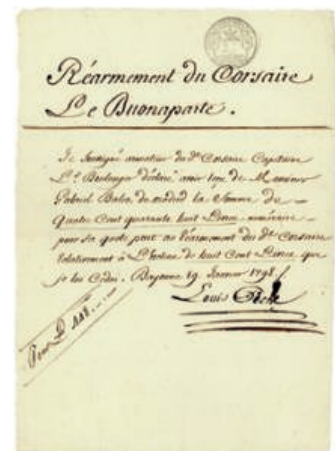 Réarmement du Corsaire
Le Buonaparte.
Je Soussigné armateur du dt Corsaire Capitaine
Declare avoir reçu de Monsieur
Gabriel de Madrid la Somme de
Quatre Cent quarante huit Livres numéraire
pour Sa quote part au Réarmement du dt Corsaire
Relativement à L'action de huit Cent Livres que
je lui Cédai. Bayonne 19 1798
Louis
Pour L 448